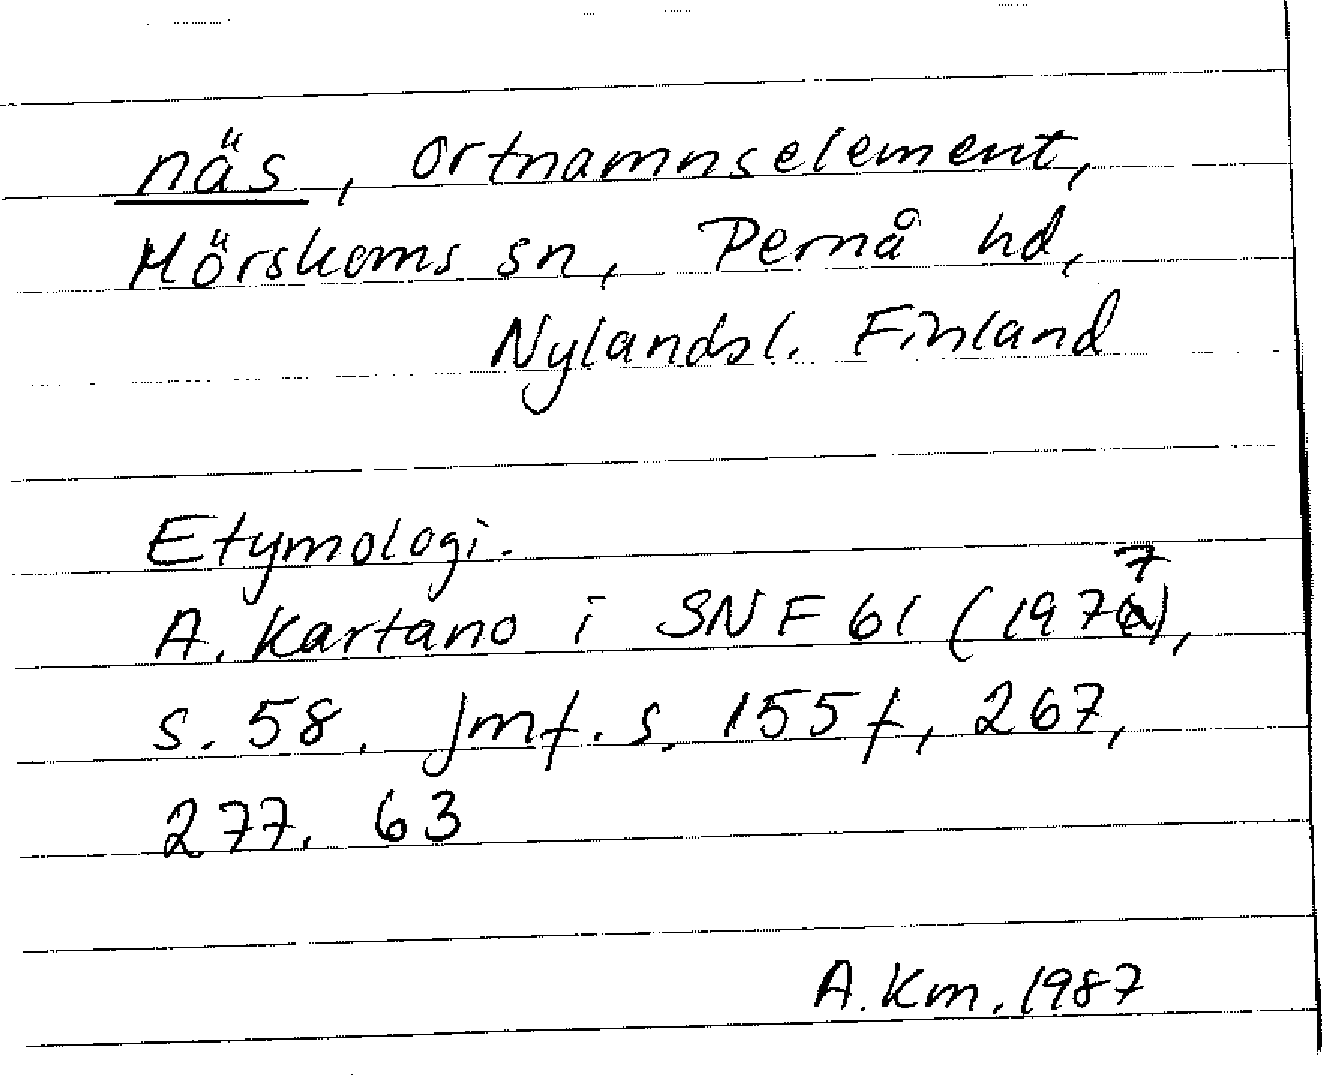 näs, ortnamnselement,
Mörskoms sn, Pernå hd,
Nylandsl. Finland
Etymologi.
A. Kartano i SNF 61 (1977),
s. 58. Jmf. s. 155 f, 267,
277. 63
A. Km. 1987